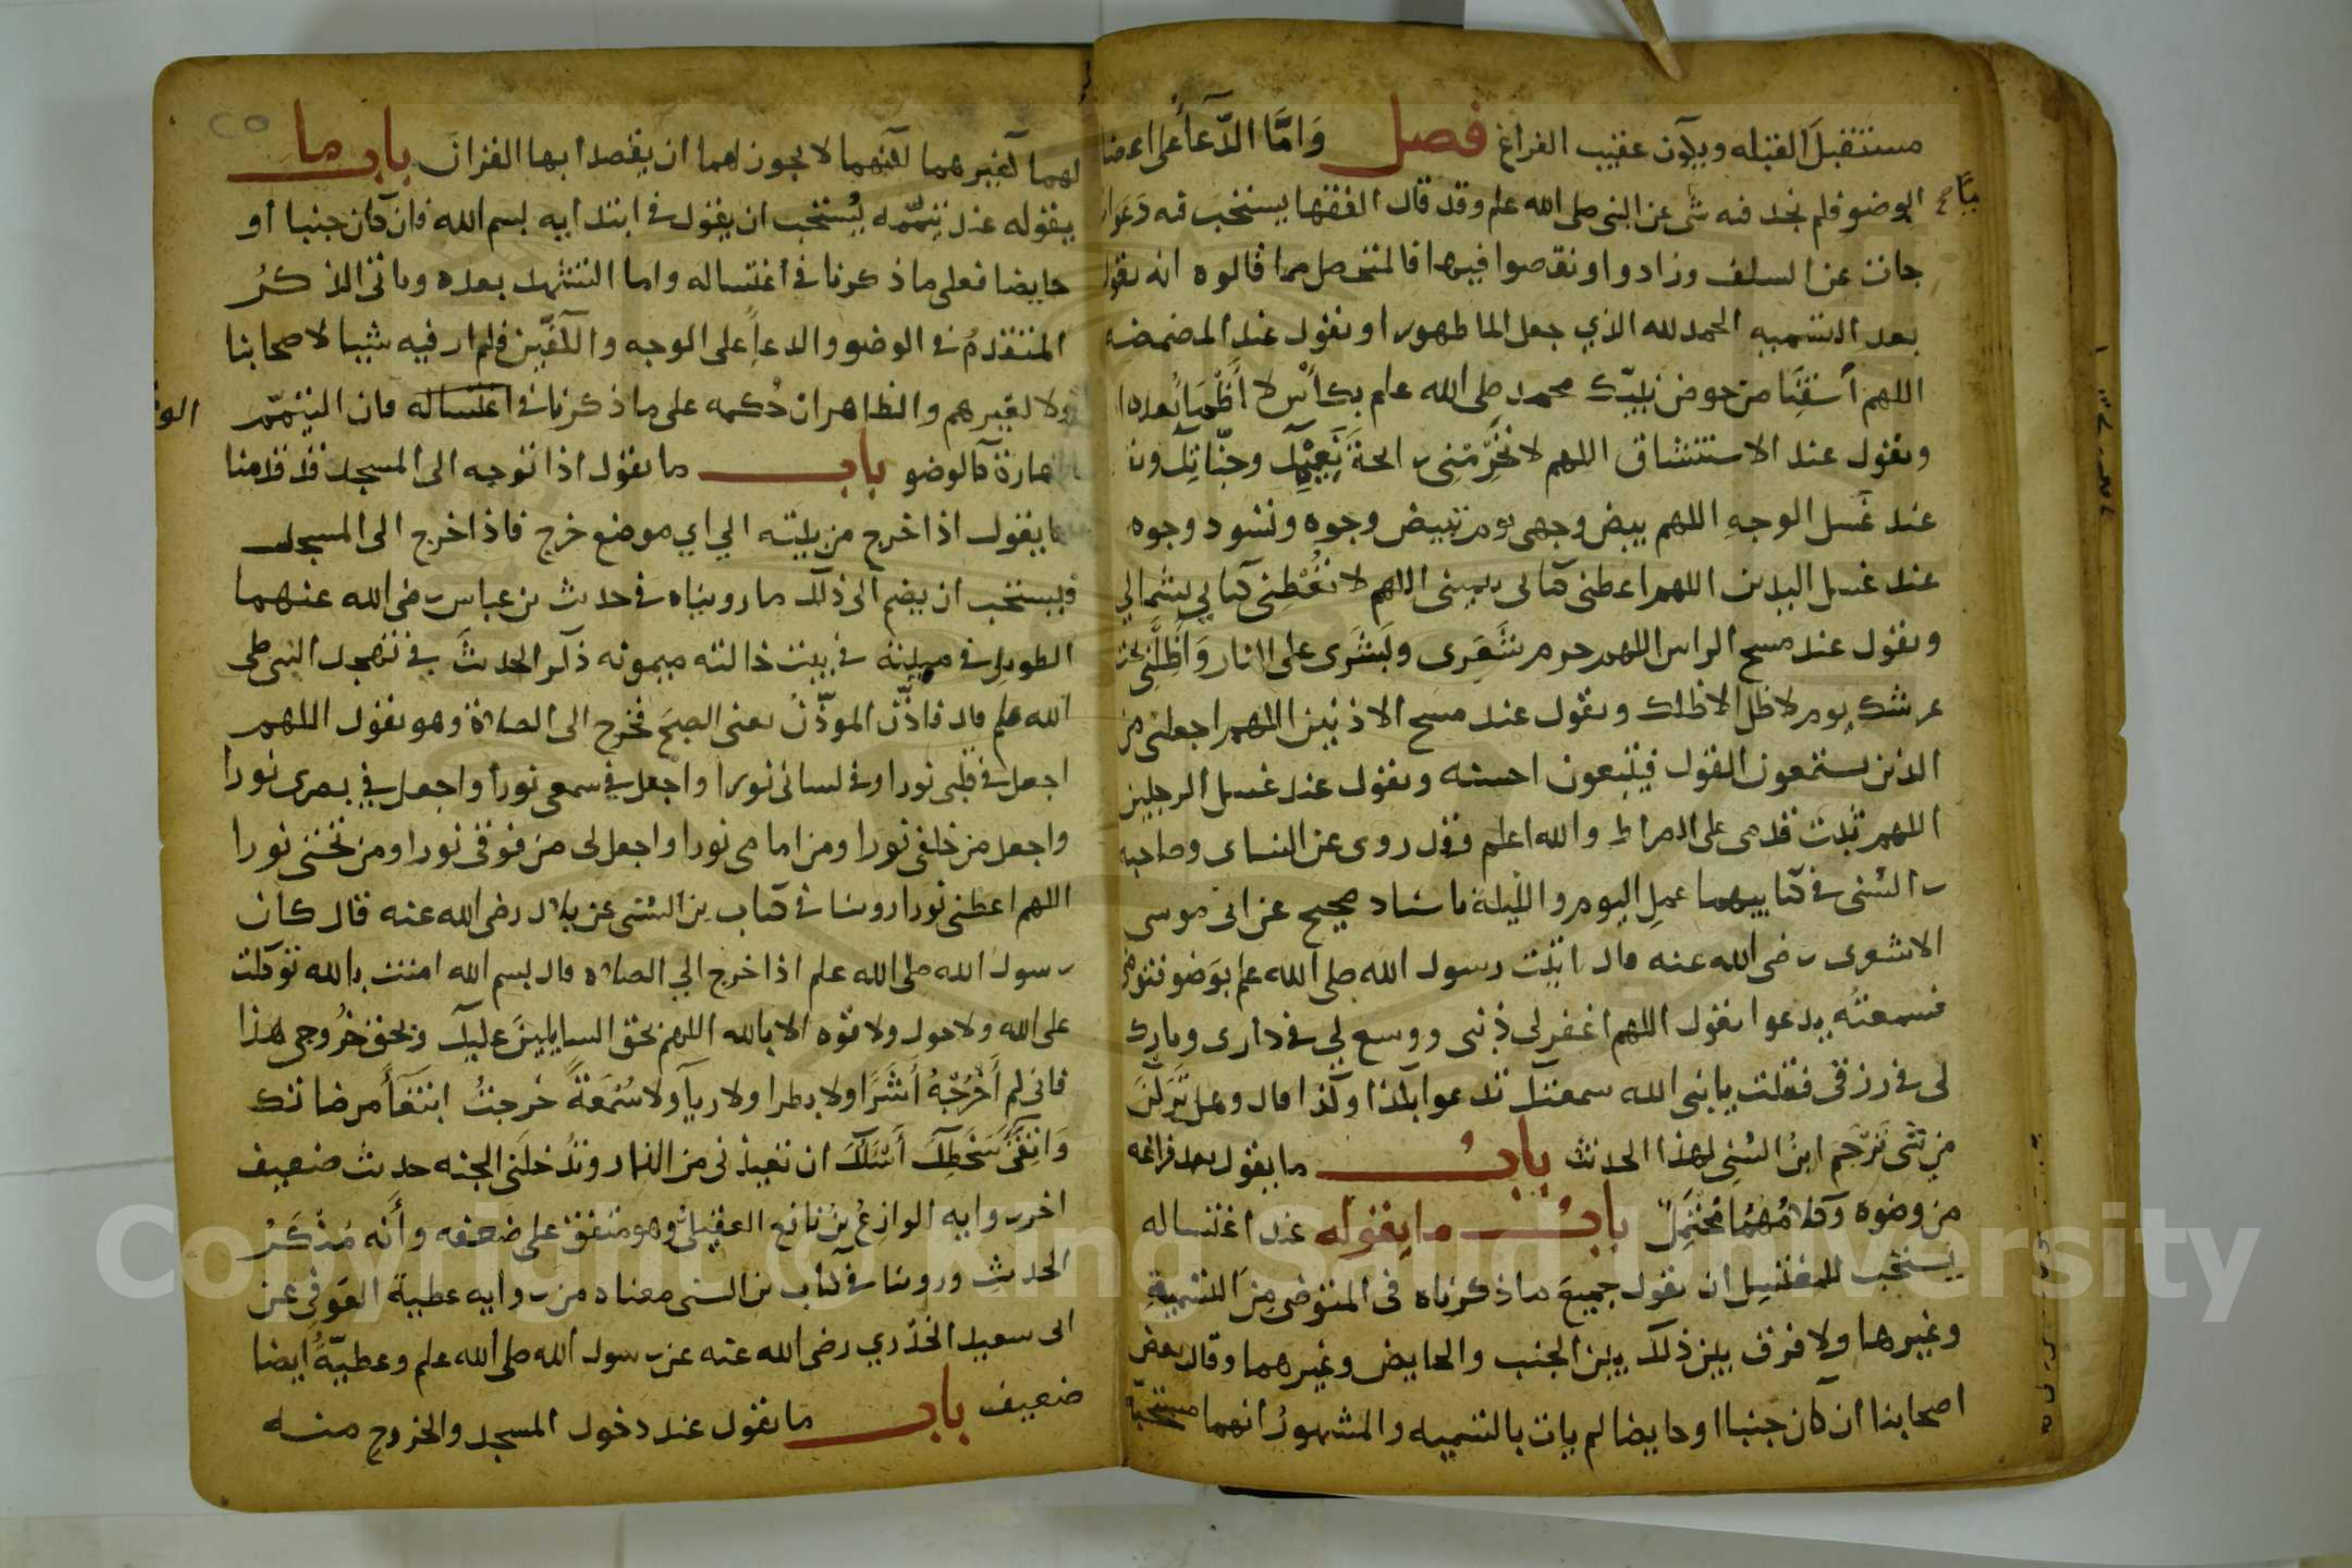 مستقبل القبله ويكون عقيب الفراغ فصل واما الدعا على اعضا
الوضو فلم يجد فيه شي عن النبي صلى الله علم وقد قال الفقها يستحب فيه دعوات
جات عن السلف وزادوا ونقصوا فيها فالمتحصل مما قالوه انه يقول
بعد التسميه الحمد لله الذي جعل الما طهورا ويقول عند المضمضه
اللهم أسقني من حوض نبيك محمد صلى الله علم بكأس لا أظمأ بعده ا
ويقول عند الاستنشاق اللهم لا تحرمني رايحة نعيمك وجناتك
عند غسل الوجه اللهم بيض وجهي يوم تبيض وجوه وتسود وجوه
عند غسل اليدين اللهم اعطني كتابي بيميني اللهم لا تعطني كتابي بشمالي
ويقول عند مسح الراس اللهم حرم شعري وبشري على النار وأظلني تحت
عرشك يوم لا ظل الا ظلك ويقول عند مسح الاذنين اللهم اجعلني من
الذين يستمعون القول فيتبعون احسنه ويقول عند غسل الرجلين
اللهم ثبت قدمي على الصراط والله اعلم وقد روى عن النساي وصاحبه
بن السني في كتابيهما عمل اليوم والليلة باسناد صحيح عن ابى موسى
الاشعرى رضى الله عنه قال اتيت رسول الله صلى الله علم بوضو فتوضى
فسمعته يدعوا يقول اللهم اغفر لى ذنبى ووسع لي في دارى وبارك
لى في رزقى فقلت يا نبى الله سمعتك تدعوا بكذا وكذا قال وهل تركن
من شي ترجم ابن السني لهذا الحديث باب ما يقول بعد فراغه
من وضوه وكلاهما محتمل باب ما يقوله عند اغتساله
يستحب للمغتسل ان يقول جميع ما ذكرناه في المتوضى من التسمية
وغيرها ولا فرق بين ذلك بين الجنب والحايض وغيرهما وقال بعض
اصحابنا ان كان جنبا او حايضا لم يات بالتسميه والمشهور انهما مستحبة
لهما كغيرهما لكنهما لا يجوز لهما ان يقصدا بها القران باب ما
يقوله عند تيممه يستحب ان يقول في ابتدايه بسم الله فان كان جنبا او
حايضا فعلى ما ذكرنا في اغتساله واما التشهد بعده وباقى الذكر
المتقدم في الوضو والدعا على الوجه والكفين فلم ار فيه شيا لاصحابنا
ولا لغيرهم والظاهر ان حكمه على ما ذكرنا في اغتساله فان التيمم
طهارة كالوضو باب ما يقول اذا توجه الى المسجد قد قدمنا
ما يقول اذا خرج من بيته الي اي موضع خرج فاذا خرج الى المسجد
فيستحب ان يضم الى ذلك ما رويناه في حديث بن عباس رضى الله عنهما
الطويل في مبيته في بيت خالته ميمونه ذكر الحديث في تهجد النبى صلى
الله علم قال فاذن الموذن يعنى الصبح فخرج الى الصلاة وهو يقول اللهم
اجعل في قلبى نورا وفى لسانى نورا واجعل في سمعى نورا واجعل في بصرى نورا
واجعل من خلفى نورا ومن امامى نورا واجعل لى من فوقى نورا ومن تحتى نورا
اللهم اعطنى نورا روينا في كتاب بن السنى عن بلال رضى الله عنه قال كان
رسول الله صلى الله علم اذا خرج الي الصلاه قال بسم الله امنت بالله توكلت
على الله ولا حول ولا قوه الا بالله اللهم بحق السايلين عليك وبحق خروجى هذا
فانى لم أخرجه أشرا ولا بطرا ولا ريا ولا سمعة خرجت ابتغأ مرضاتك
واتقى سخطك أسئلك ان تعيذنى من النار وتدخلنى الجنه حديث ضعيف
اخر روايه الوازع بن نافع العقيلى وهو متفق على ضعفه وأنه منكر
الحديث وروينا في كتاب بن السنى معناه من روايه عطية العوفى عن
ابى سعيد الخدري رضى الله عنه عن رسول الله صلى الله علم وعطية ايضا
ضعيف باب ما يقول عند دخول المسجد والخروج منه
Copyright © King Saud University